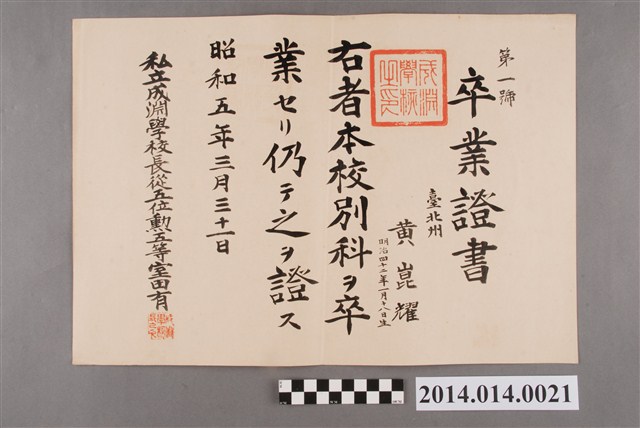 第一號
卒業證書
臺北州
黃崑耀
明治四十二年一月十八日生
成淵
學校
之印
右者本校別科ヲ卒
業セリ仍テ之ヲ證ス
昭和五年三月三十一日
私立成淵學校長從五位勳五等室田有
2014.014.0021